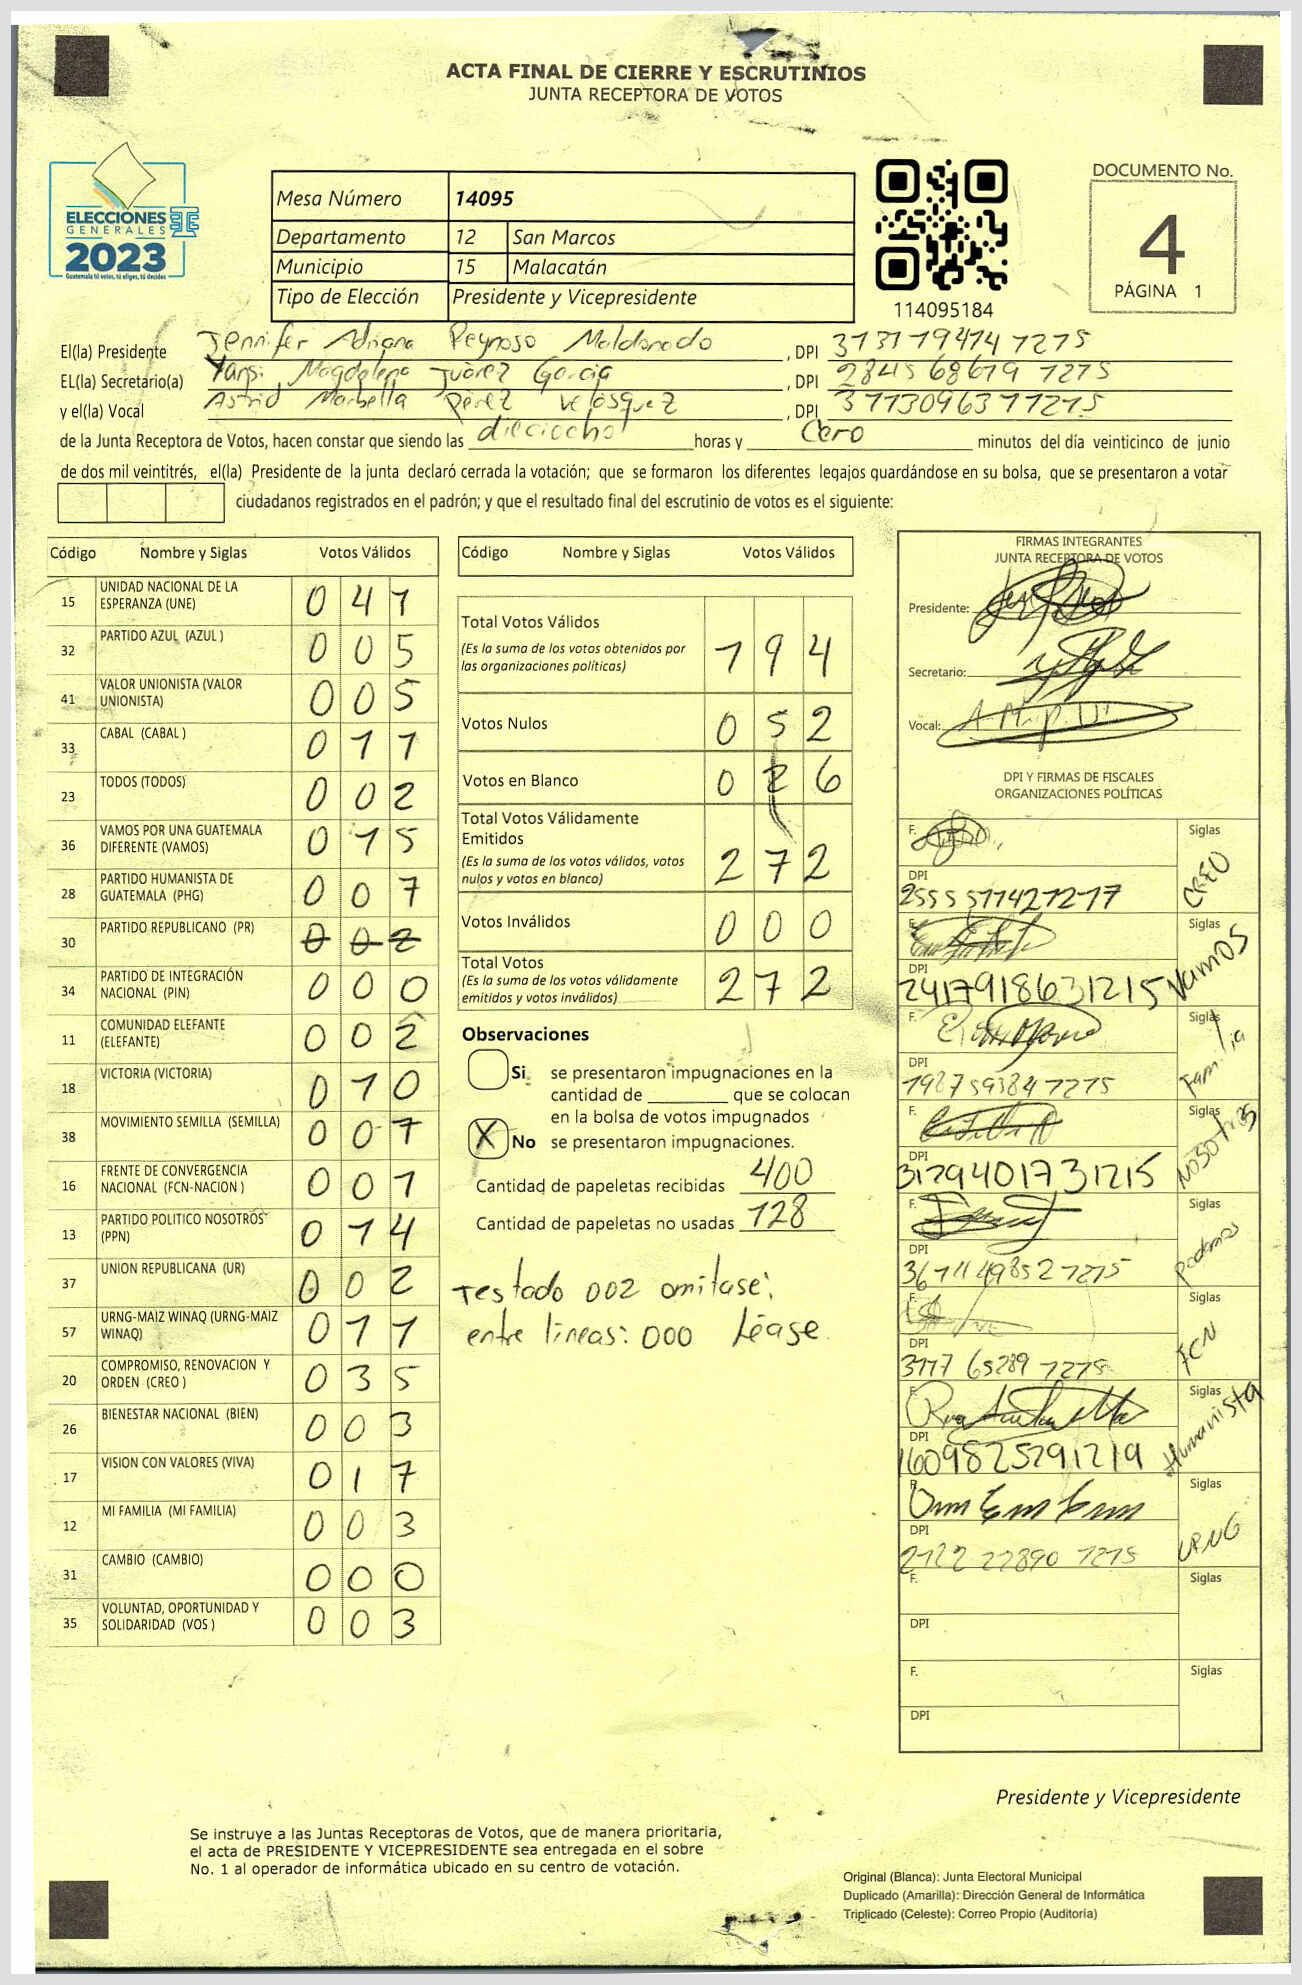 ACTA FINAL DE CIERRE Y ESCRUTINIOS
JUNTA RECEPTORA DE VOTOS
ELECCIONES
GENERALES
2023
Guatemala tú votas, tú eliges, tú decides
Mesa Número 14095
Departamento 12 San Marcos
Municipio 15 Malacatán
Tipo de Elección Presidente y Vicepresidente
114095184
DOCUMENTO No.
4
PÁGINA 1
El(la) Presidente Jennifer Adriana Reynoso Maldonado, DPI
EL(la) Secretario(a) Magdalena Juàrez Garcia, DPI 2845 68679 1215
y el(la) Vocal Astrid Marbella Pérez Velásquez, DPI
de la Junta Receptora de Votos, hacen constar que siendo las dieciocho horas y Cero minutos del día veinticinco de junio
de dos mil veintitrés, el(la) Presidente de la junta declaró cerrada la votación; que se formaron los diferentes legajos quardándose en su bolsa, que se presentaron a votar
ciudadanos registrados en el padrón; y que el resultado final del escrutinio de votos es el siguiente:
Código Nombre y Siglas Votos Válidos
15 UNIDAD NACIONAL DE LA ESPERANZA (UNE) 0 4 1
32 PARTIDO AZUL (AZUL ) 0 0 5
41 VALOR UNIONISTA (VALOR UNIONISTA) 0 0 5
33 CABAL (CABAL ) 0 1 1
23 TODOS (TODOS) 0 0 2
36 VAMOS POR UNA GUATEMALA DIFERENTE (VAMOS) 0 1 5
28 PARTIDO HUMANISTA DE GUATEMALA (PHG) 0 0 7
30 PARTIDO REPUBLICANO (PR) 0 0 2
34 PARTIDO DE INTEGRACIÓN NACIONAL (PIN) 0 0 0
11 COMUNIDAD ELEFANTE (ELEFANTE) 0 0 2
18 VICTORIA (VICTORIA) 0 1 0
38 MOVIMIENTO SEMILLA (SEMILLA) 0 0 7
16 FRENTE DE CONVERGENCIA NACIONAL (FCN-NACION ) 0 0 1
13 PARTIDO POLITICO NOSOTROS (PPN) 0 1 4
37 UNION REPUBLICANA (UR) 0 0 2
57 URNG-MAIZ WINAQ (URNG-MAIZ WINAQ) 0 1 1
20 COMPROMISO, RENOVACION Y ORDEN (CREO ) 0 3 5
26 BIENESTAR NACIONAL (BIEN) 0 0 3
17 VISION CON VALORES (VIVA) 0 1 7
12 MI FAMILIA (MI FAMILIA) 0 0 3
31 CAMBIO (CAMBIO) 0 0 0
35 VOLUNTAD, OPORTUNIDAD Y SOLIDARIDAD (VOS ) 0 0 3
Código Nombre y Siglas Votos Válidos
Total Votos Válidos 1 9 4
(Es la suma de los votos obtenidos por
las organizaciones políticas)
Votos Nulos 0 5 2
Votos en Blanco 0 2 6
Total Votos Válidamente
Emitidos
(Es la suma de los votos válidos, votos
nulos y votos en blanco) 2 7 2
Votos Inválidos 0 0 0
Total Votos
(Es la suma de los votos válidamente
emitidos y votos inválidos) 2 7 2
Observaciones
Si se presentaron impugnaciones en la
cantidad de ________ que se colocan
en la bolsa de votos impugnados
X No se presentaron impugnaciones.
Cantidad de papeletas recibidas 400
Cantidad de papeletas no usadas 128
Testado 002 omitase;
entre lineas: 000 Léase
FIRMAS INTEGRANTES
JUNTA RECEPTORA DE VOTOS
Presidente:
Secretario:
Vocal:
DPI Y FIRMAS DE FISCALES
ORGANIZACIONES POLÍTICAS
F. Siglas CREO
DPI
F. Siglas Vamos
DPI 2417918631215
F. Siglas Familia
DPI 1987593841215
F. Siglas NOSOTROS
DPI 3129401731215
F. Siglas podemos
DPI
F. Siglas FCN
DPI 3177 65289 1215
F. Siglas Humanista
DPI 1609825291219
F. Siglas URNG
DPI
F. Siglas
DPI
F. Siglas
DPI
Presidente y Vicepresidente
Se instruye a las Juntas Receptoras de Votos, que de manera prioritaria,
el acta de PRESIDENTE Y VICEPRESIDENTE sea entregada en el sobre
No. 1 al operador de informática ubicado en su centro de votación.
Original (Blanca): Junta Electoral Municipal
Duplicado (Amarilla): Dirección General de Informática
Triplicado (Celeste): Correo Propio (Auditoría)